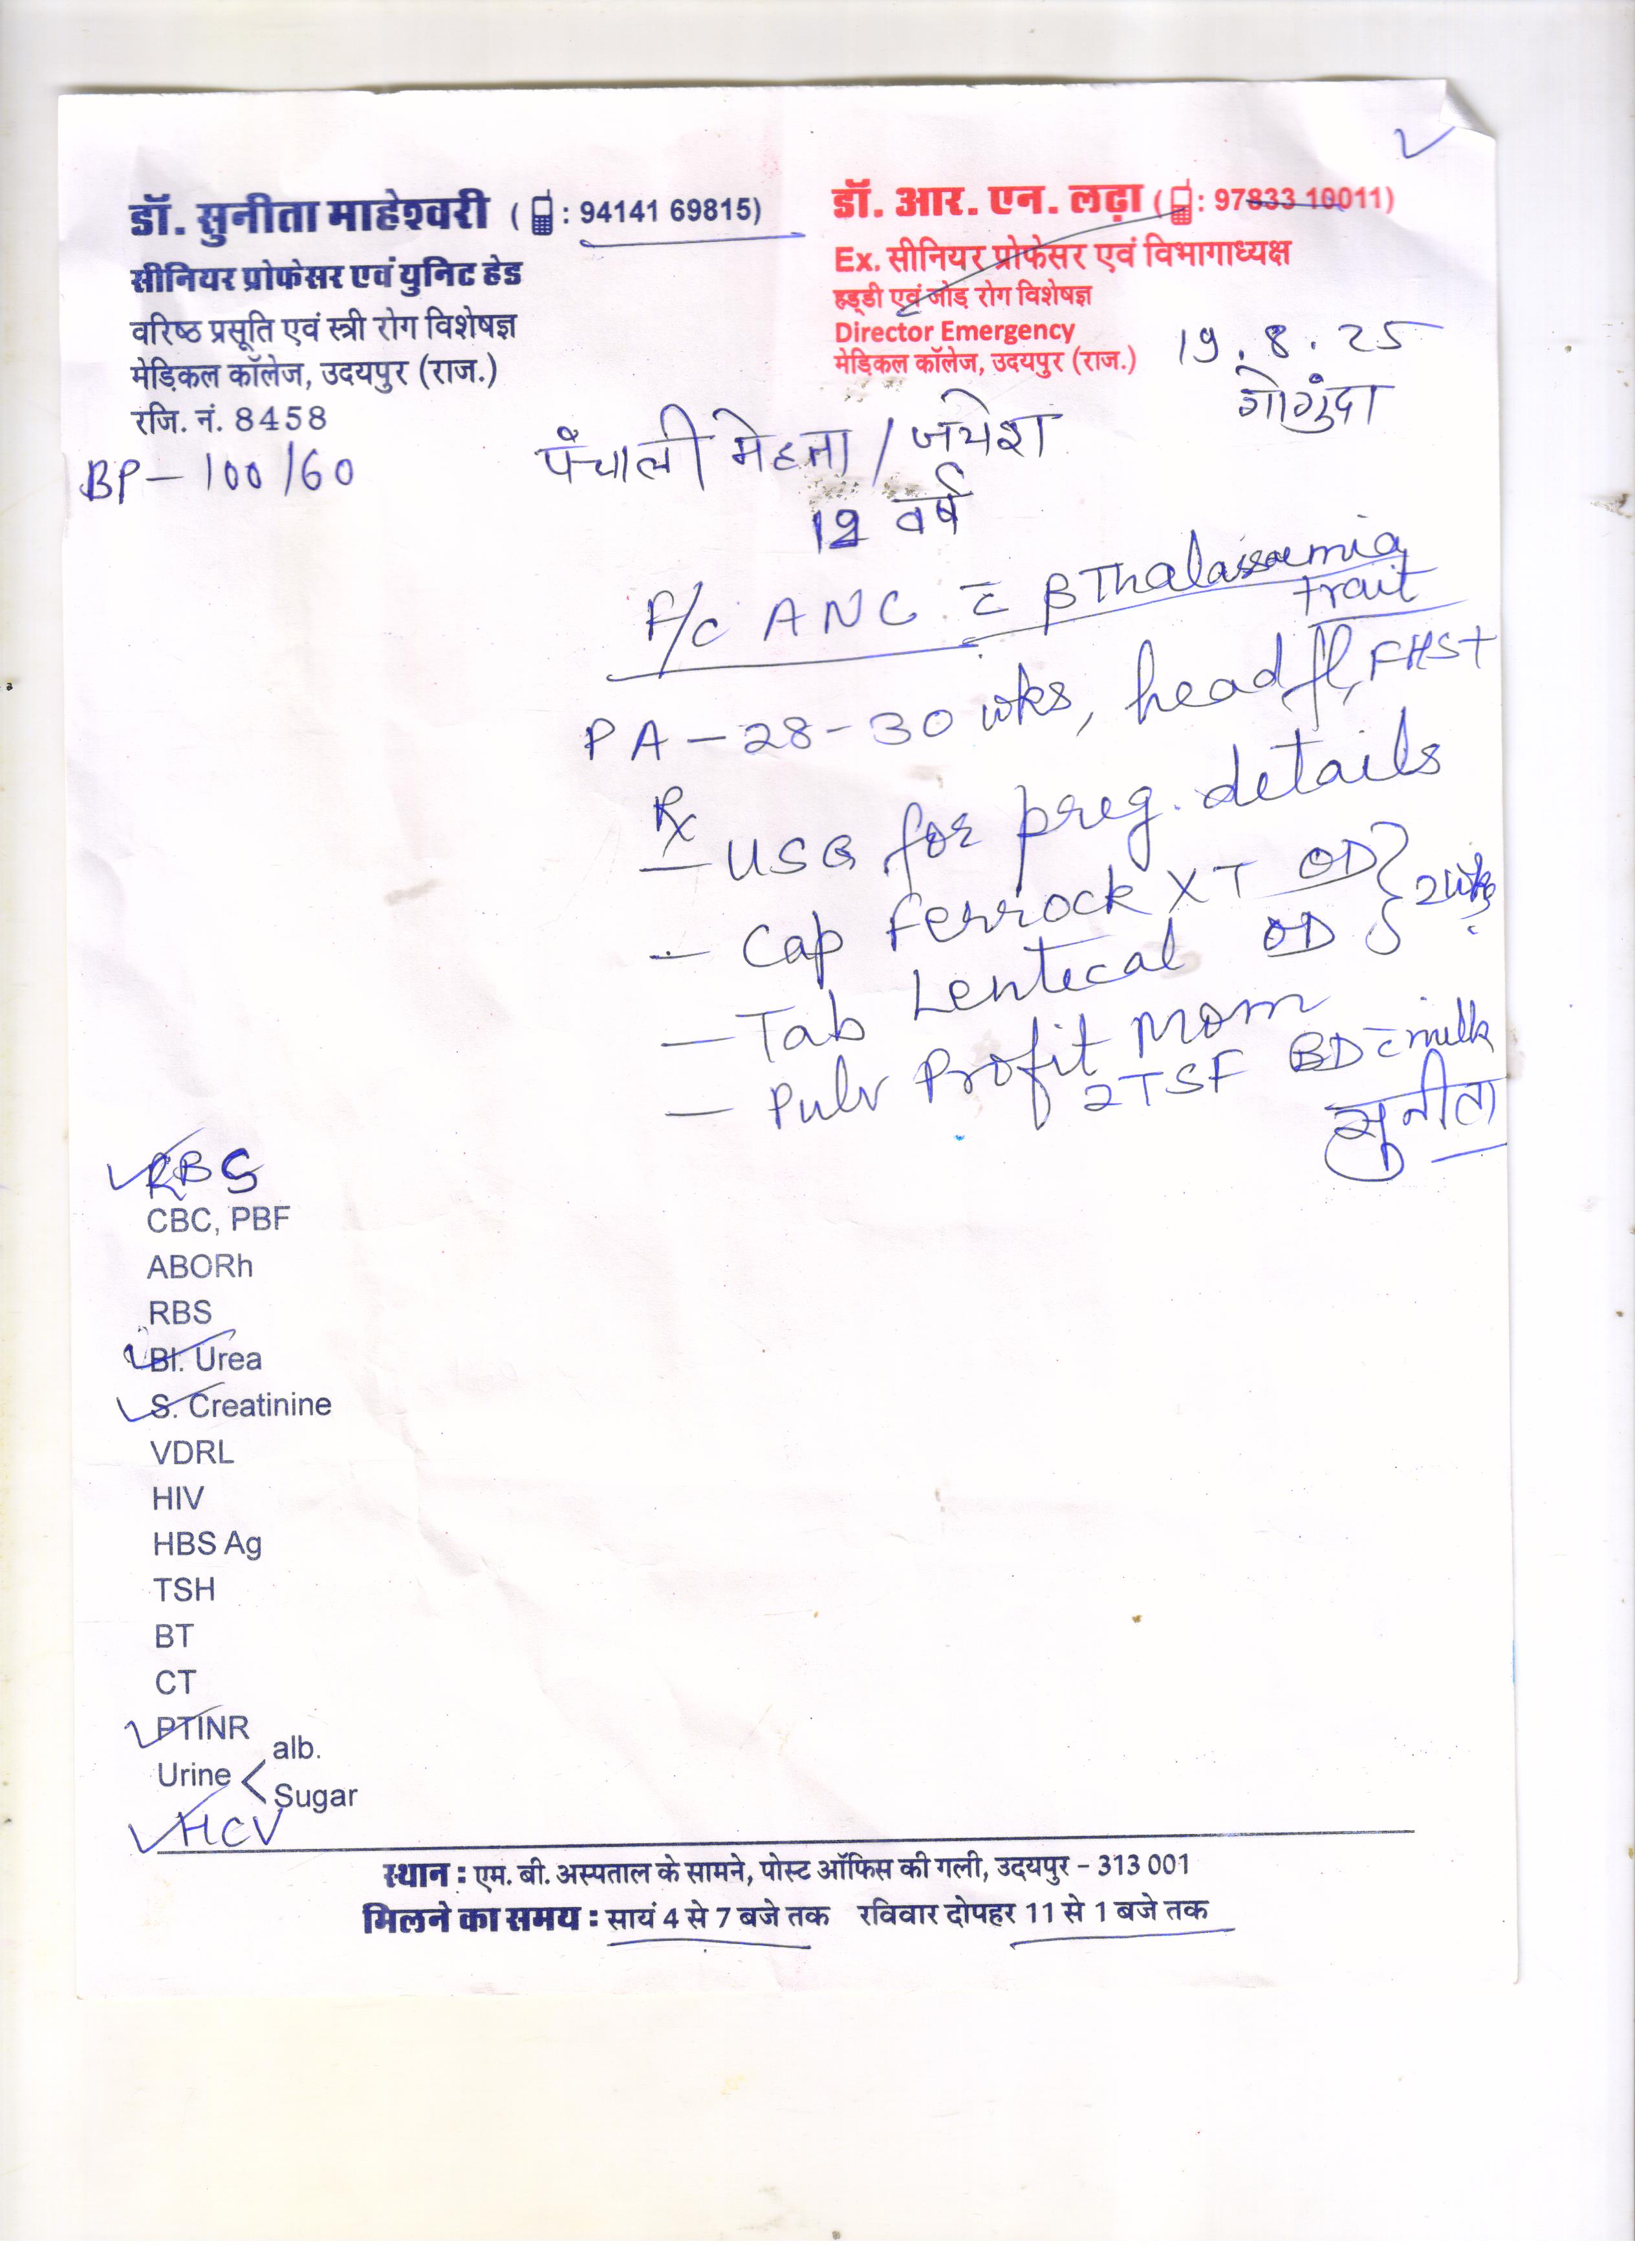 डॉ. सुनीता माहेश्वरी ( : 94141 69815)
सीनियर प्रोफेसर एवं युनिट हेड
वरिष्ठ प्रसूति एवं स्त्री रोग विशेषज्ञ
मेडिकल कॉलेज, उदयपुर (राज.)
रजि. नं. 8458
डॉ. आर. एन. लढ़ा ( : 97833 10011)
Ex. सीनियर प्रोफेसर एवं विभागाध्यक्ष
हड्डी एवं जोड़ रोग विशेषज्ञ
Director Emergency
मेडिकल कॉलेज, उदयपुर (राज.)
19.8.25
गोगुंदा
BP - 100/60
पंचाली मेहता / जयेश
वर्ष
F/c ANC c̄ β Thalassaemia
trait
PA - 28 - 30 wks, head fl, FHS+
Rx
- USG for preg. details
- Cap Ferrock XT OD } 2 wks
- Tab Lentical OD
- Pulv Profit Mom
2TSF BD c̄ milk
सुनीता
RBS
CBC, PBF
ABORh
RBS
Bl. Urea
S. Creatinine
VDRL
HIV
HBS Ag
TSH
BT
CT
PTINR
Urine < alb.
Sugar
HCV
स्थान : एम. बी. अस्पताल के सामने, पोस्ट ऑफिस की गली, उदयपुर - 313 001
मिलने का समय : सायं 4 से 7 बजे तक रविवार दोपहर 11 से 1 बजे तक